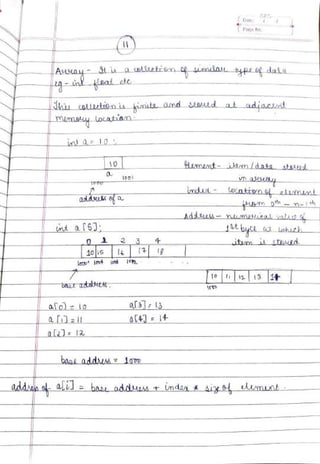 Date: / /
Page No.
11
Array - It is a collection of similar type of data
eg - int float etc
This collection is finite and stored at adjacent
memory location.
int a = 10 ;
10
a 1001
1000
address of a
Element - item/data stored
in array
index - location of element
from 0th - n-1th
Address - numerical value of
1st byte at which
item is stored
int a [5];
0 1 2 3 4
10 15 16 17 18
base address.
10 11 12 13 14
1000
a[0] = 10 a[3] = 13
a[1] = 11 a[4] = 14
a[2] = 12
base address = 1000
address of a[i] = base address + index * size of element.